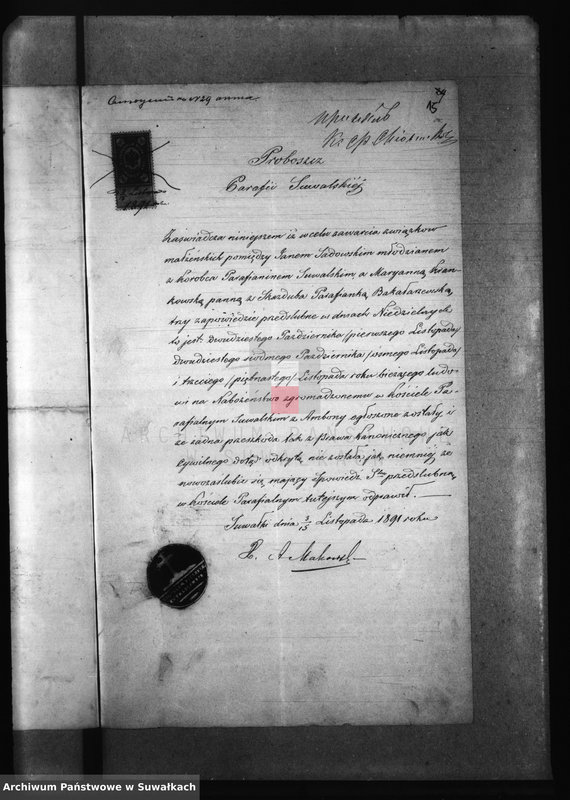 29
15
Proboszcz
Parafii Suwalskiéj
Zaświadcza niniejszem iż w celu zawarcia związków
małżeńskich pomiędzy Janem Sadowskim młodzianem
z Korobca Parafianinem Suwalskim, a Maryanną Kran-
kowską panną z Skazduba Parafianką Bakałarzewską,
trzy zapowiedzie przedślubne w dniach Niedzielnych
to jest: Dwudziestego Października /pierwszego Listopada/
Dwudziestego siódmego Października /ósmego Listopada/
i trzeciego /piętnastego/ Listopada roku bieżącego ludo-
wi na Nabożeństwo zgromadzonemu w Kościele Pa-
rafialnym Suwalskim z Ambony ogłoszone zostały, i
że żadna przeszkoda tak z prawa kanonicznego jak
cywilnego dotąd odkrytą nie została; jak niemniej że
nowozaślubić się mający Spowiedź Stą przedślubną
w Kościele Parafialnym tutejszym odprawił.
Suwałki dnia 3/15 Listopada 1891 roku
X. A Makowski
Archiwum Państwowe w Suwałkach